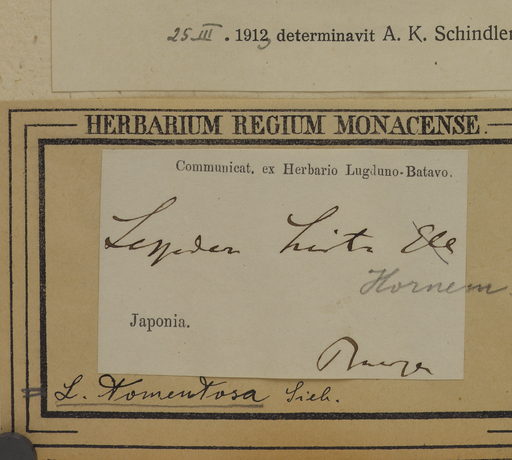 25 III . 1913 determinavit A. K. Schindler
HERBARIUM REGIUM MONACENSE.
Communicat. ex Herbario Lugduno-Batavo.
Lespedeza hirta Ell
Hornem.
Japonia.
Buerger
= L. tomentosa Sieb.